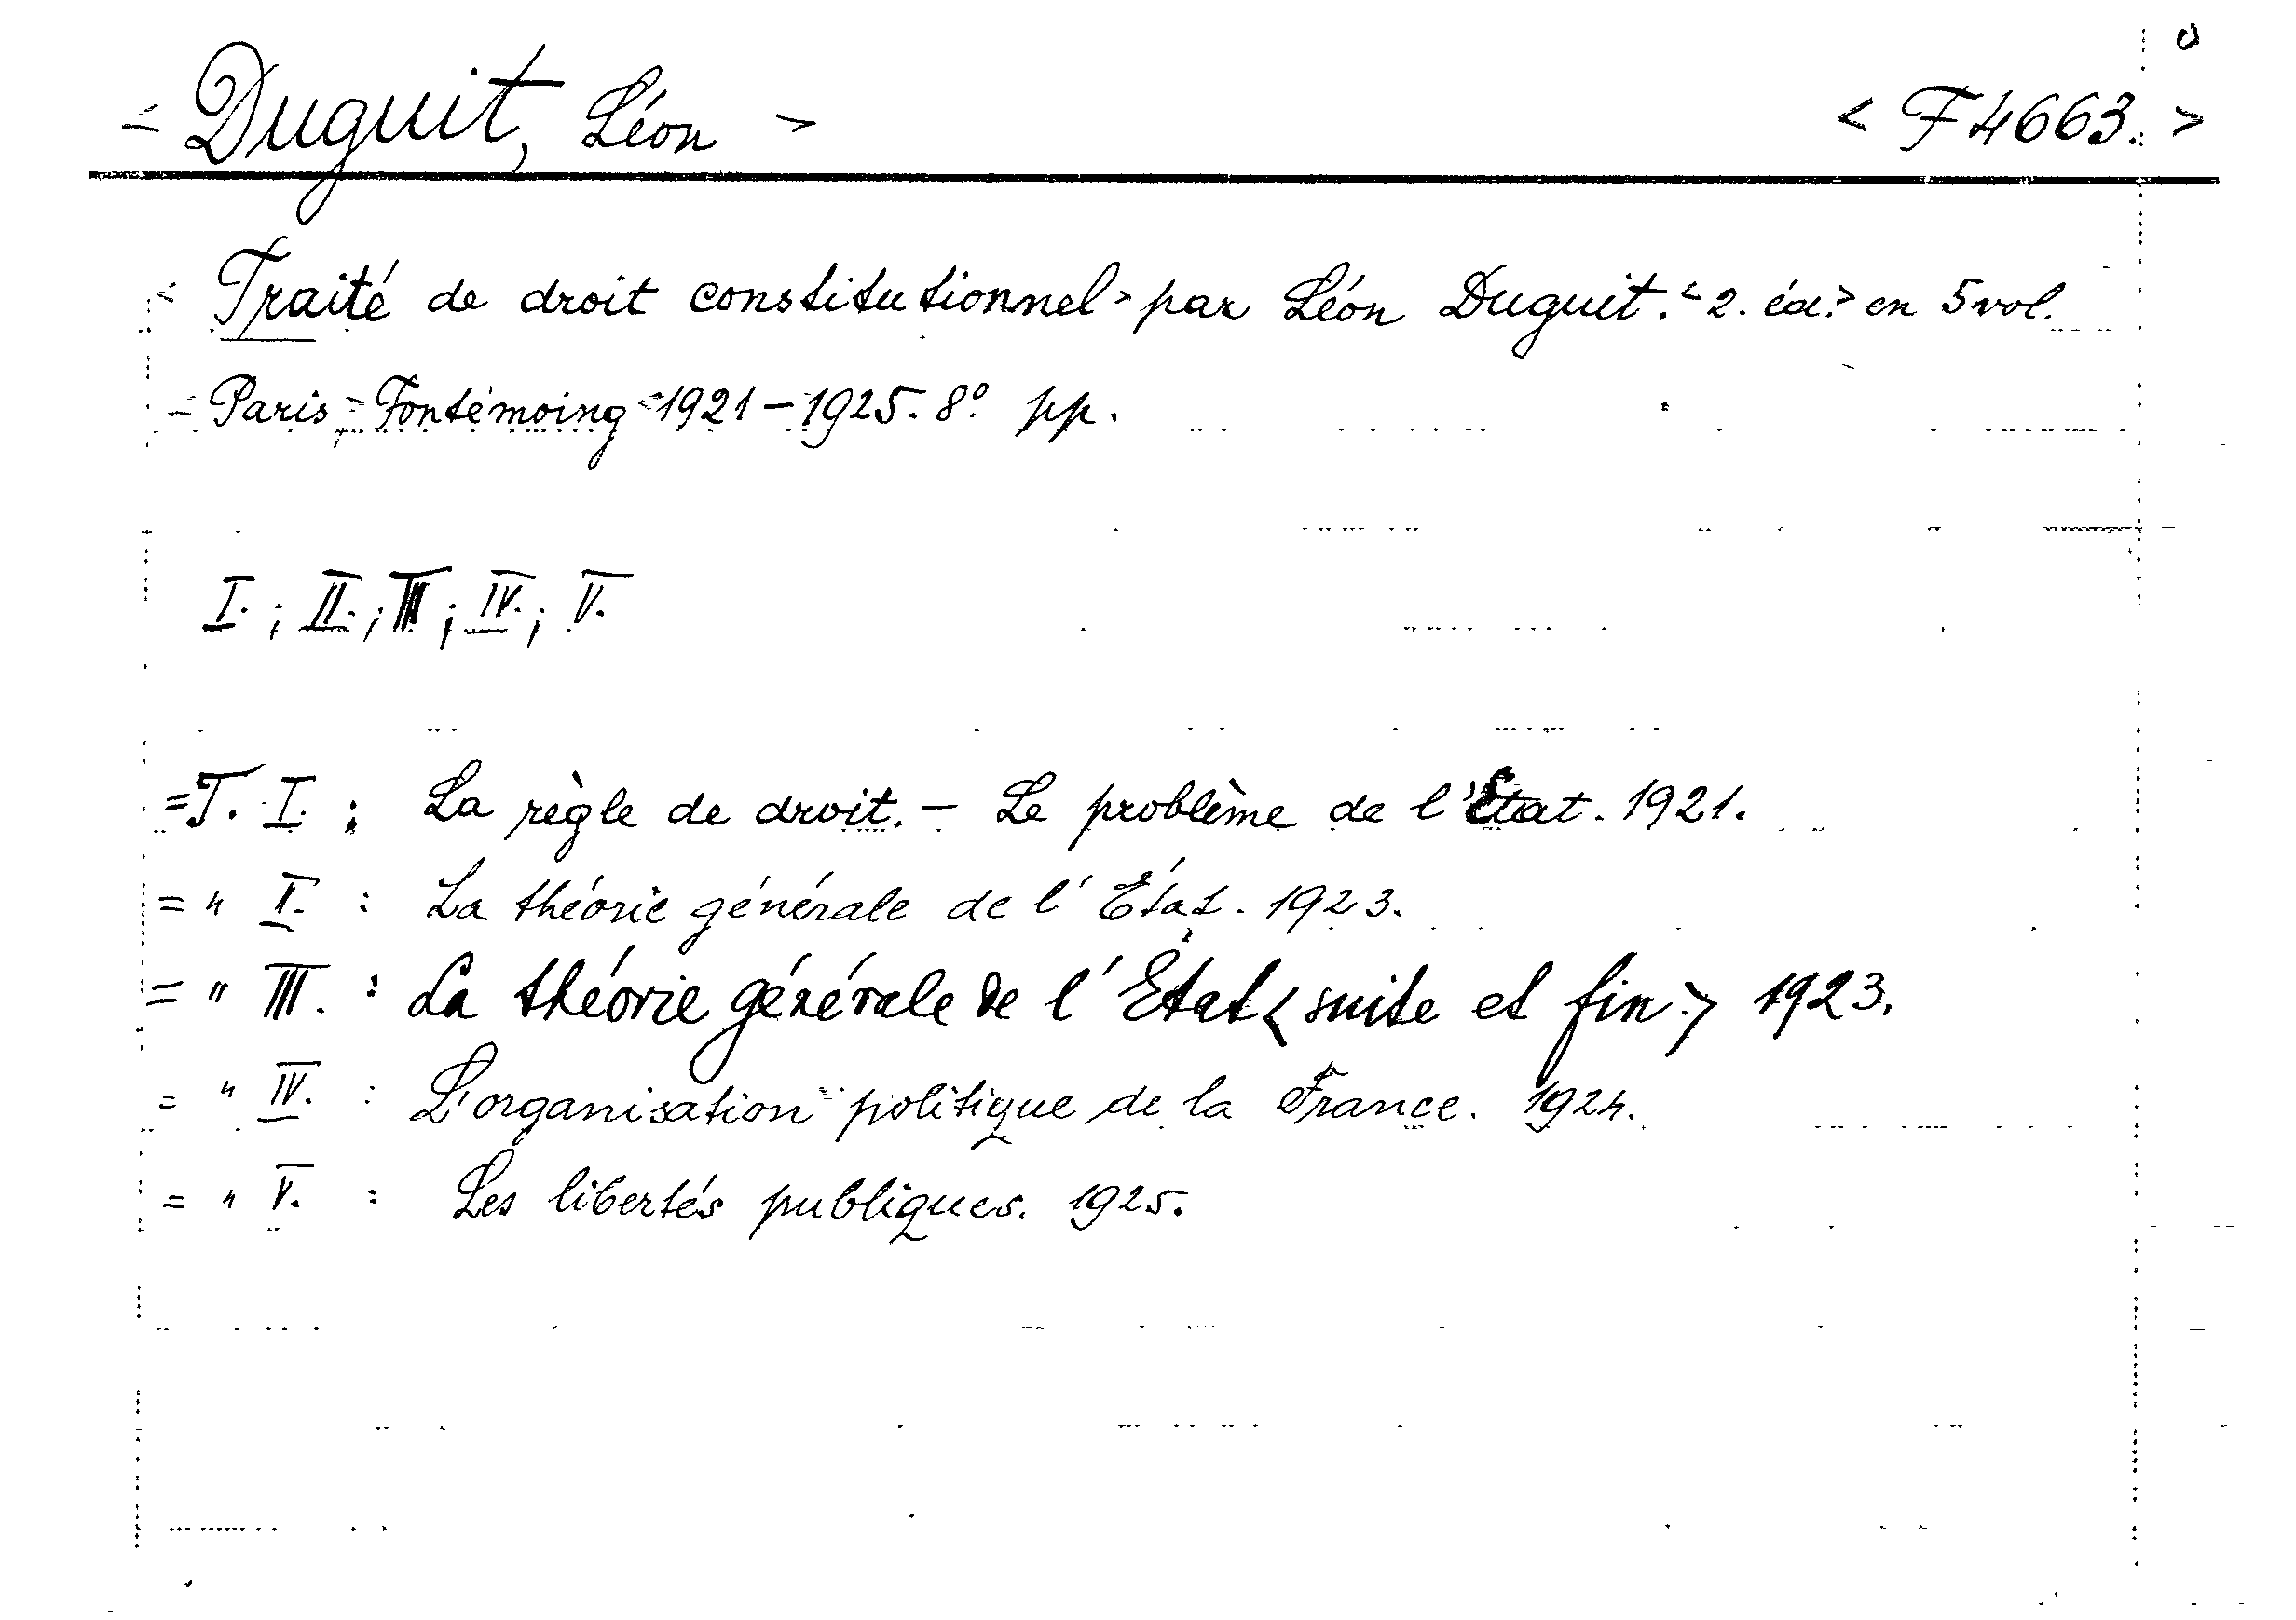 = Duguit, Léon > < F 4663. >
< Traité de droit constitutionnel > par Léon Duguit. < 2. éd. > en 5 vol.
= Paris = Fontémoing < 1921 – 1925. 8° pp.
I. ; II. ; III ; IV. ; V.
= T. I. : La règle de droit. – Le problème de l'Etat. 1921.
= " II. : La théorie générale de l'État. 1923.
= " III. : La théorie générale de l'État < suite et fin. > 1923.
= " IV. : L'organisation politique de la France. 1924.
= " V. : Les libertés publiques. 1925.